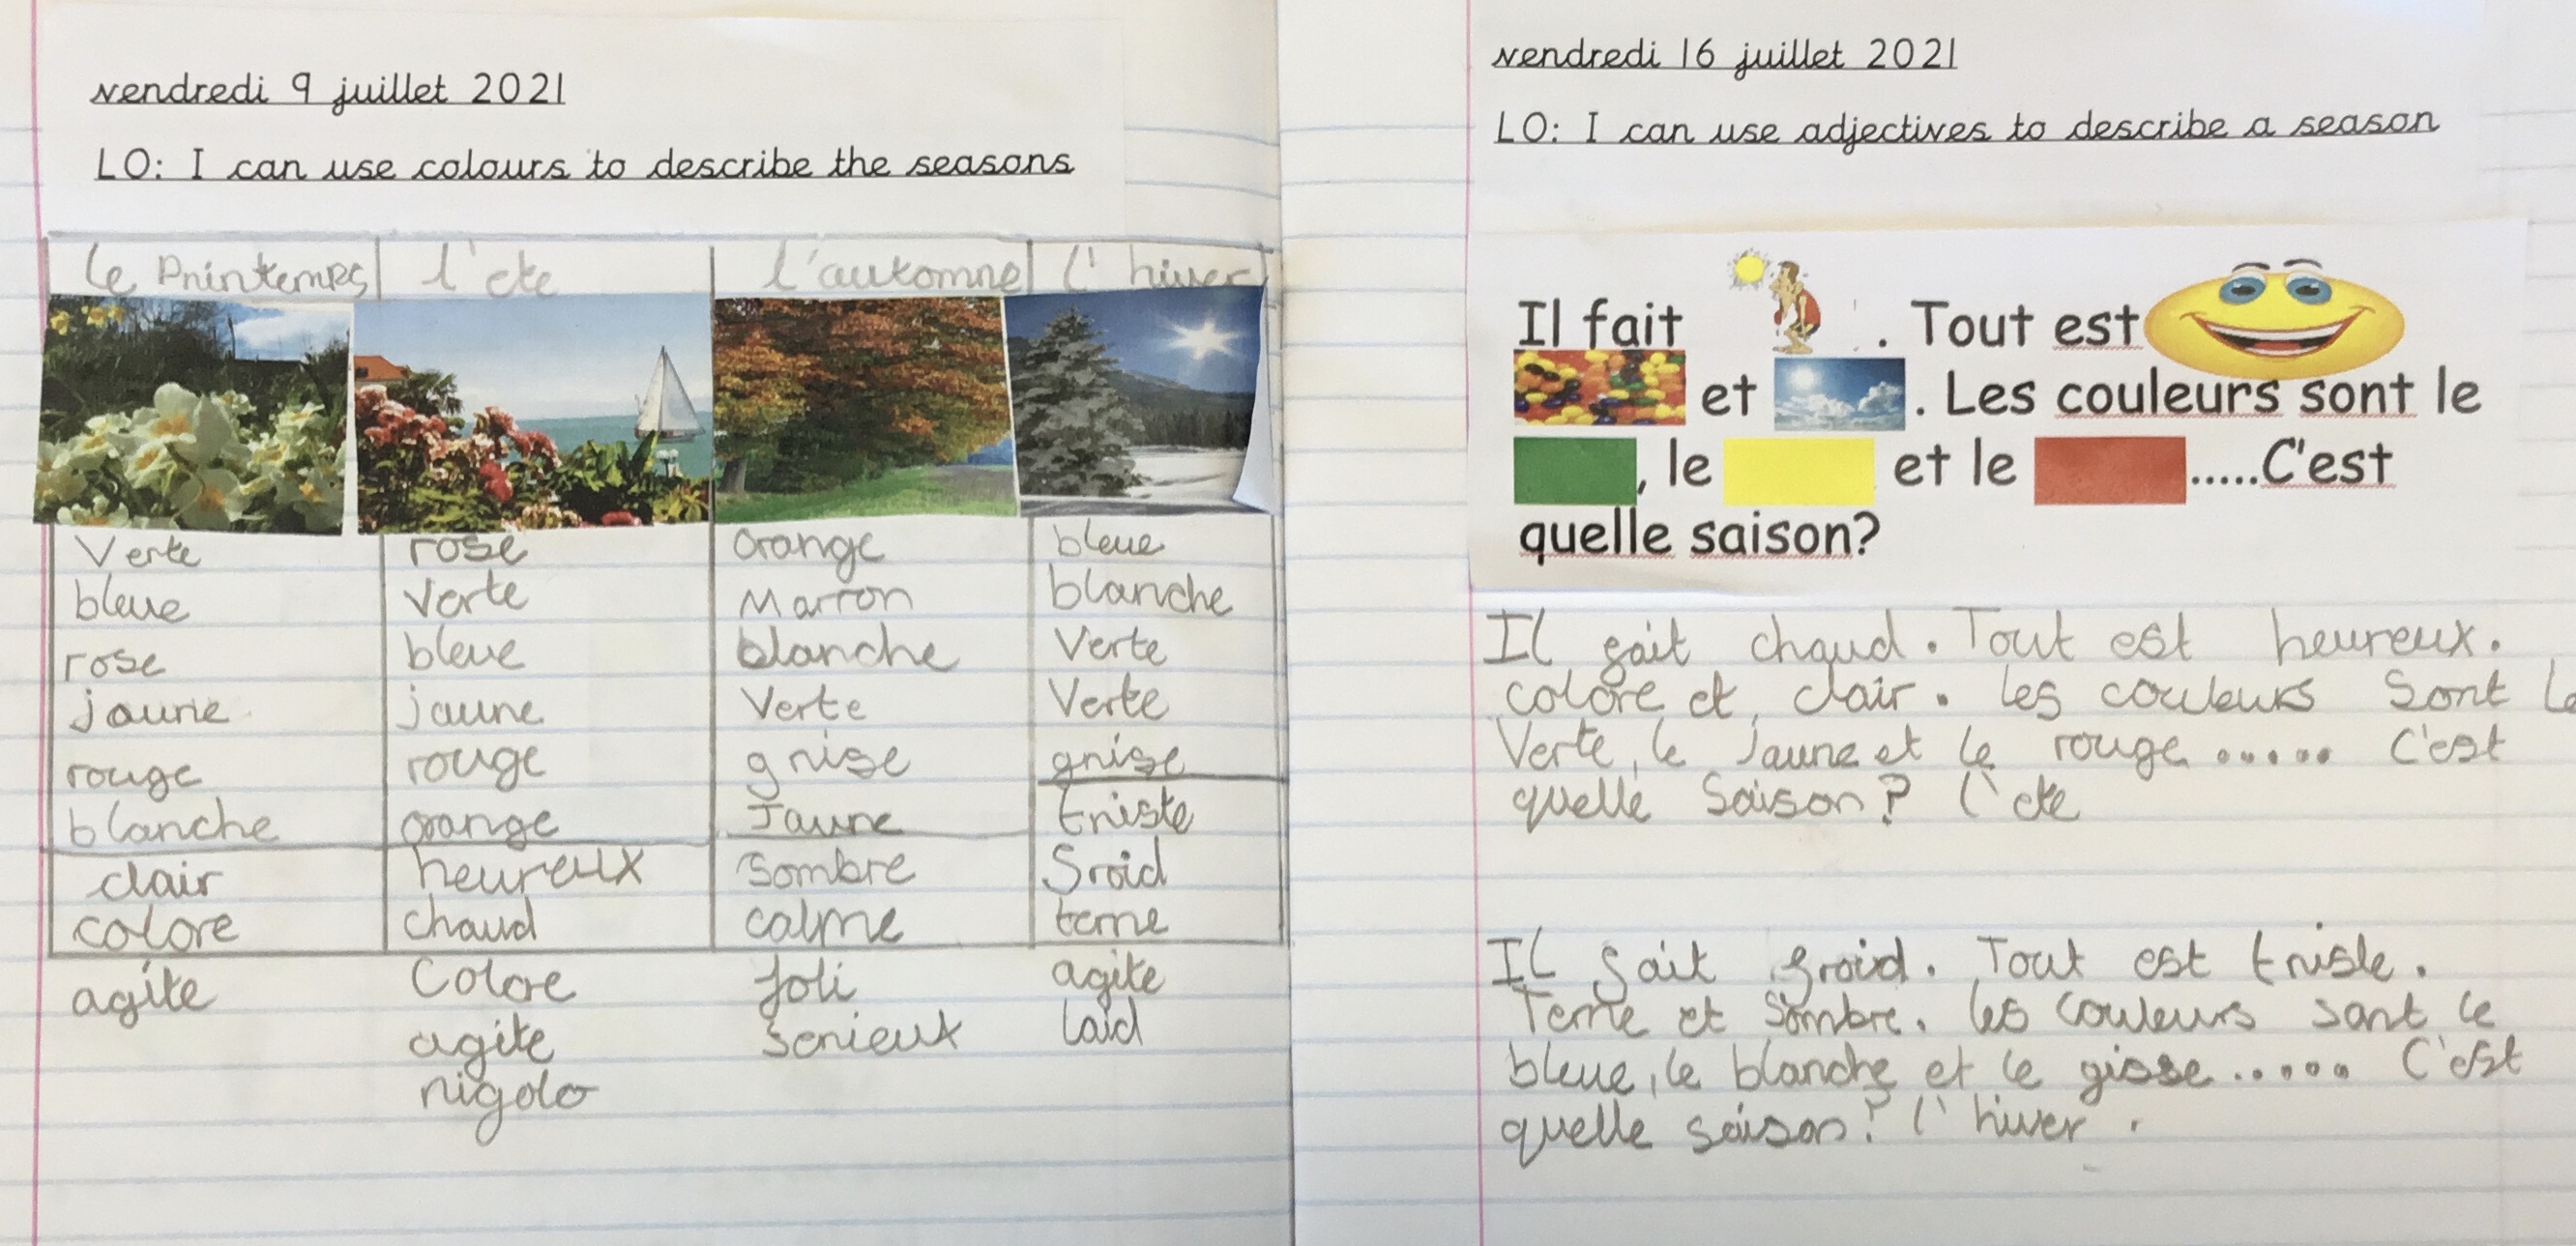 vendredi 9 juillet 2021
LO: I can use colours to describe the seasons
le Printemps l'ete l'automne l'hiver
Verte rose orange bleue
bleue Verte Marron blanche
rose bleue blanche Verte
jaune jaune Verte Verte
rouge rouge grise grise
blanche orange Jaune triste
clair heureux Sombre froid
colore chaud calme terne
agite Colore Joli agite
agite serieux laid
rigolo
vendredi 16 juillet 2021
LO: I can use adjectives to describe a season
Il fait . Tout est
et . Les couleurs sont le
, le et le .....C'est
quelle saison?
Il fait chaud. Tout est heureux.
colore et clair. les couleurs sont le
Verte, le Jaune et le rouge..... C'est
quelle Saison? l'ete
Il fait froid. Tout est triste.
Terne et Sombre. les couleurs sont le
bleue, le blanche et le gisse..... C'est
quelle saison? l'hiver.